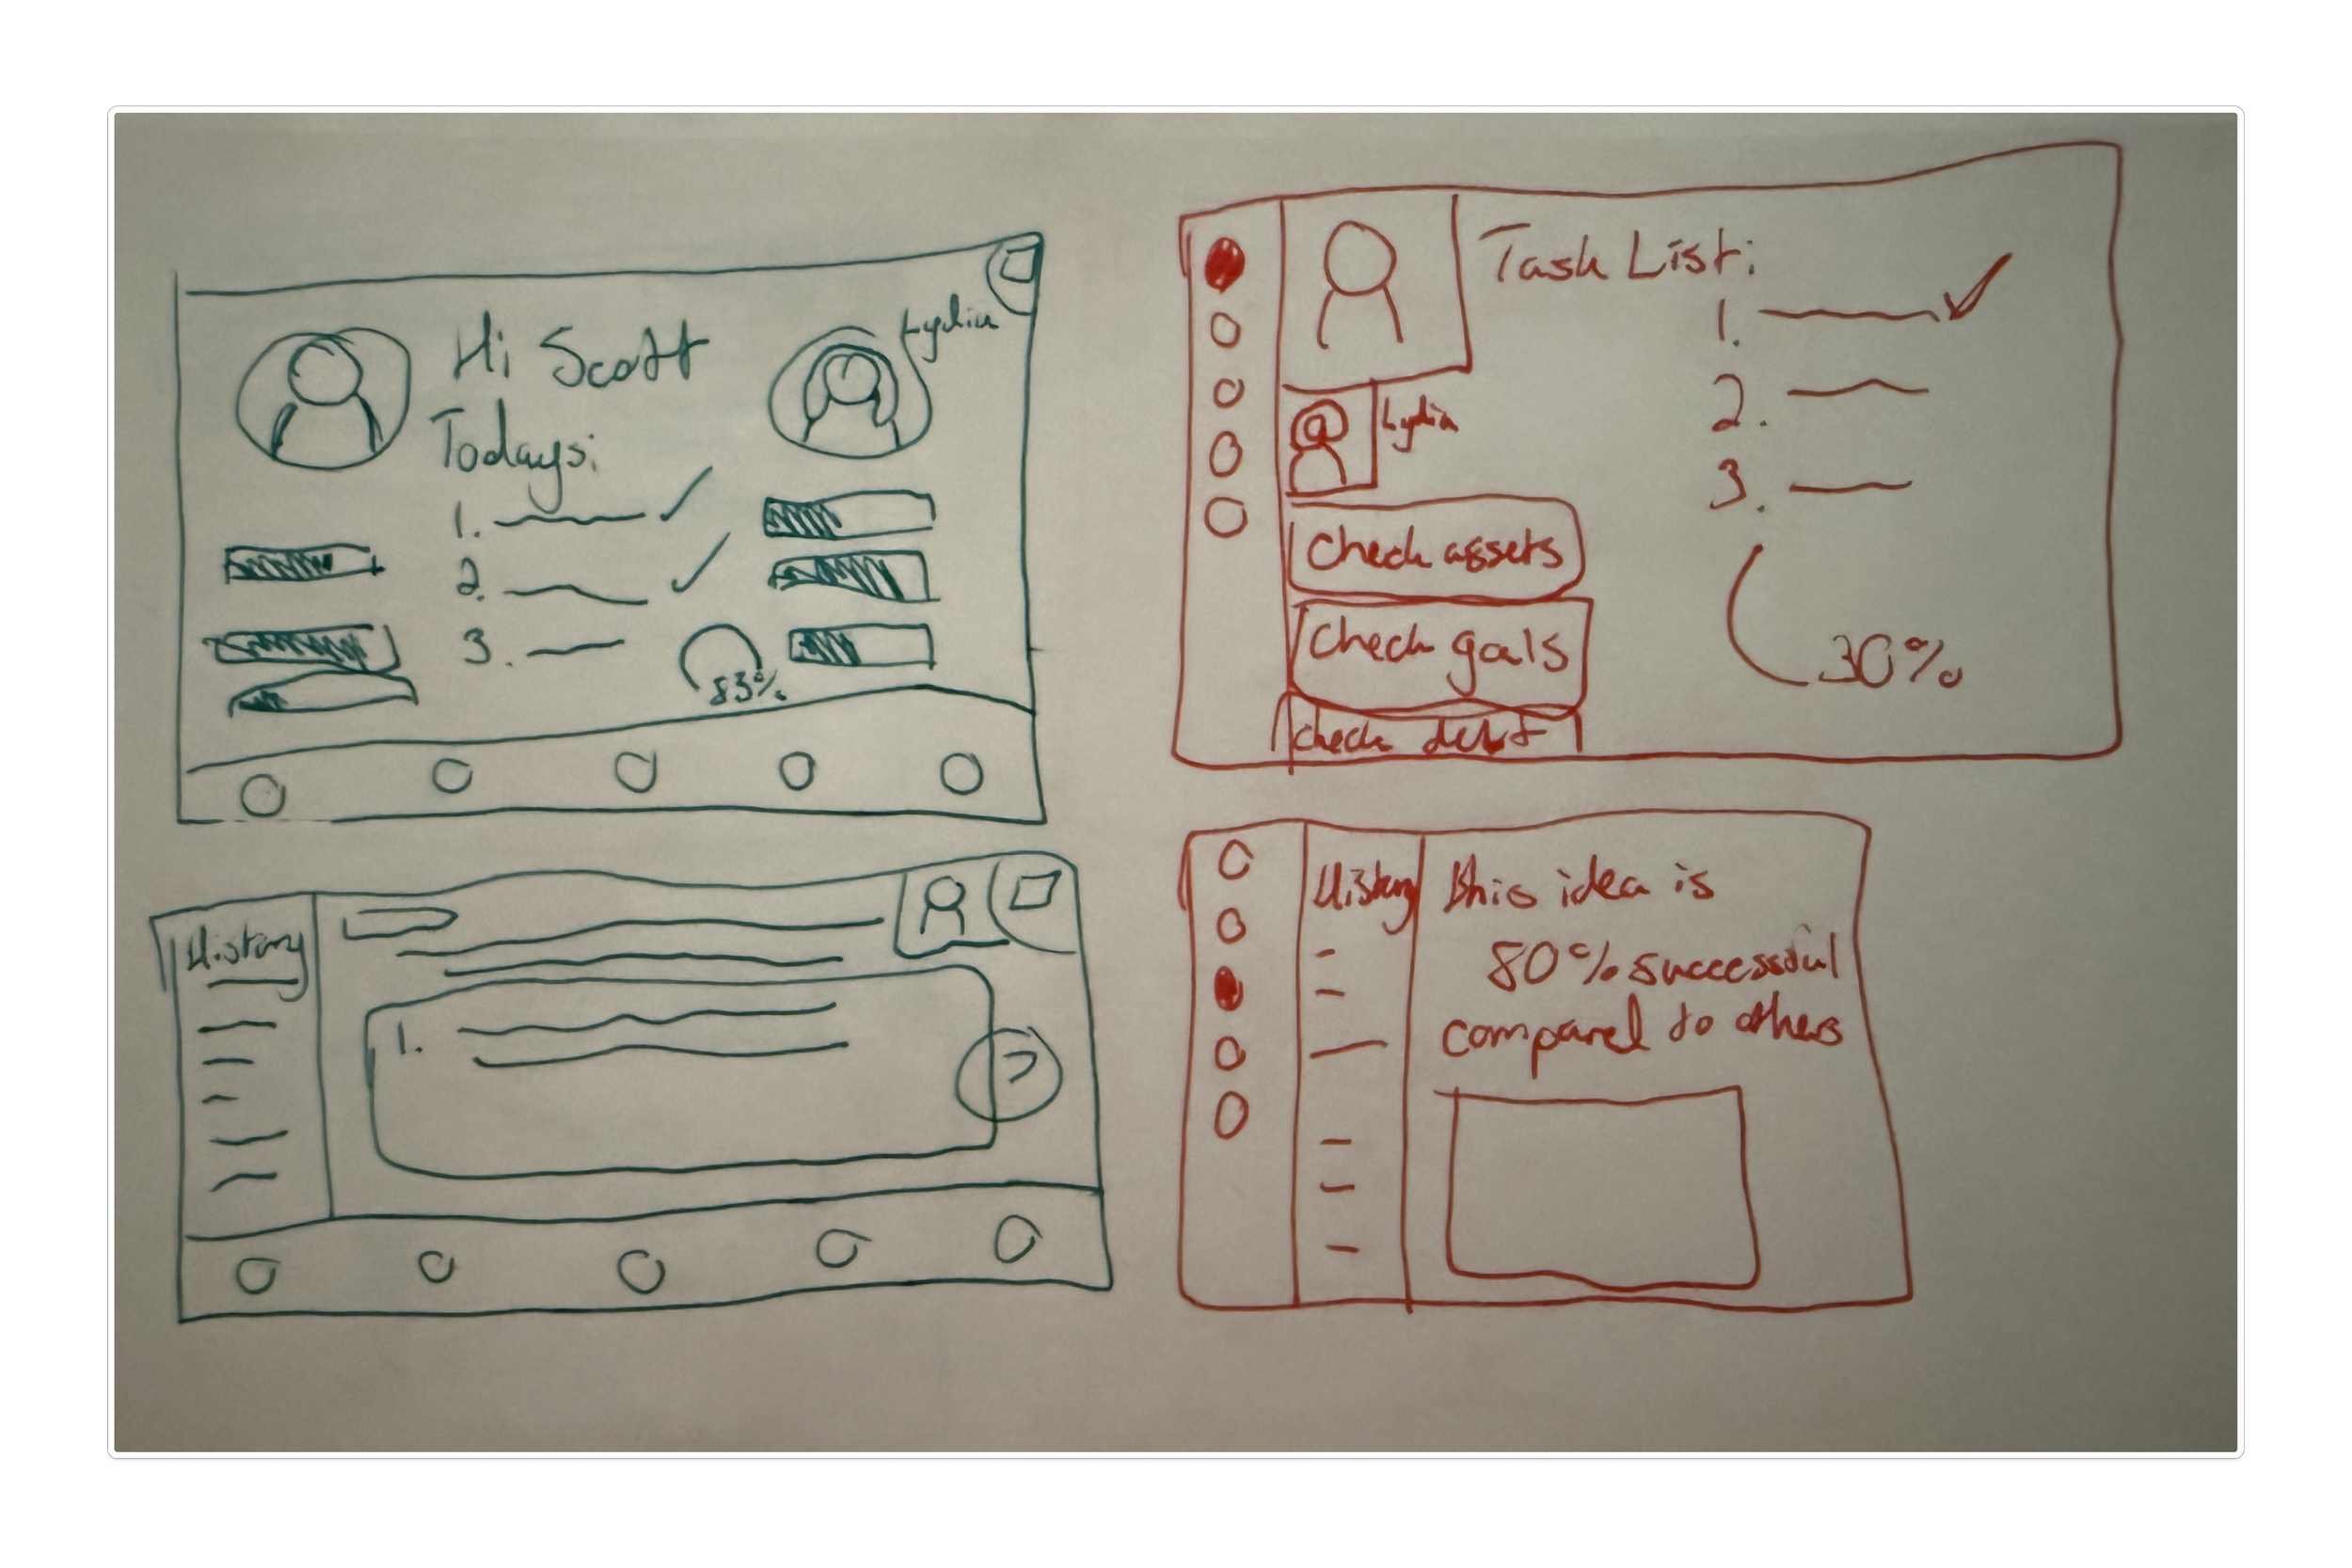 Hi Scott
Lydia
Todays:
1.
2.
3.
83%
Task List:
1.
2.
3.
Lydia
Check assets
Check goals
check debt
30%
History
1.
?
History
this idea is
80% successful
compared to others